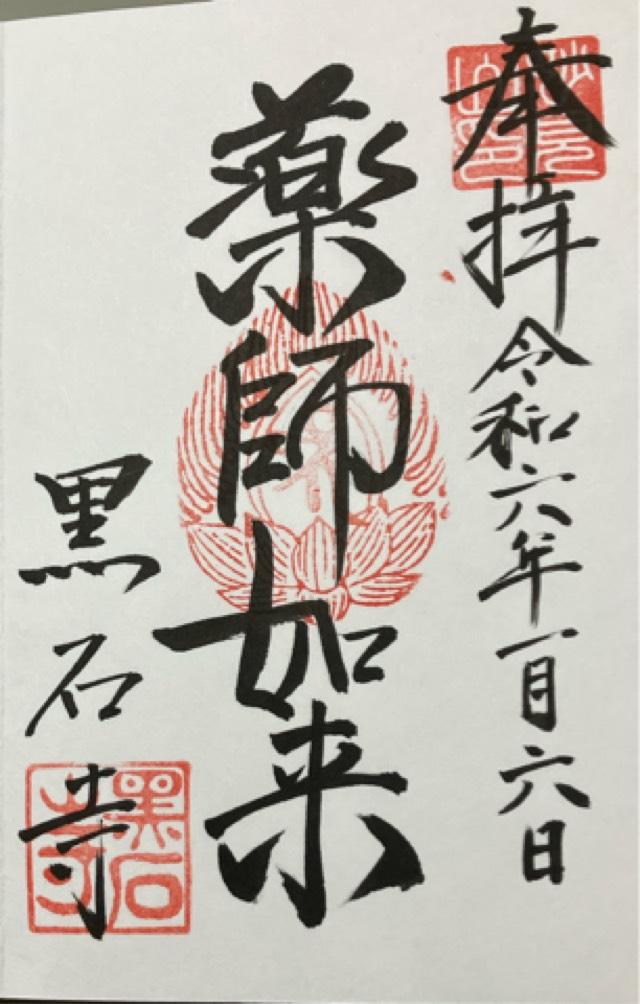 奉拝 令和六年一月六日
薬師如来
黒石寺
黒石寺